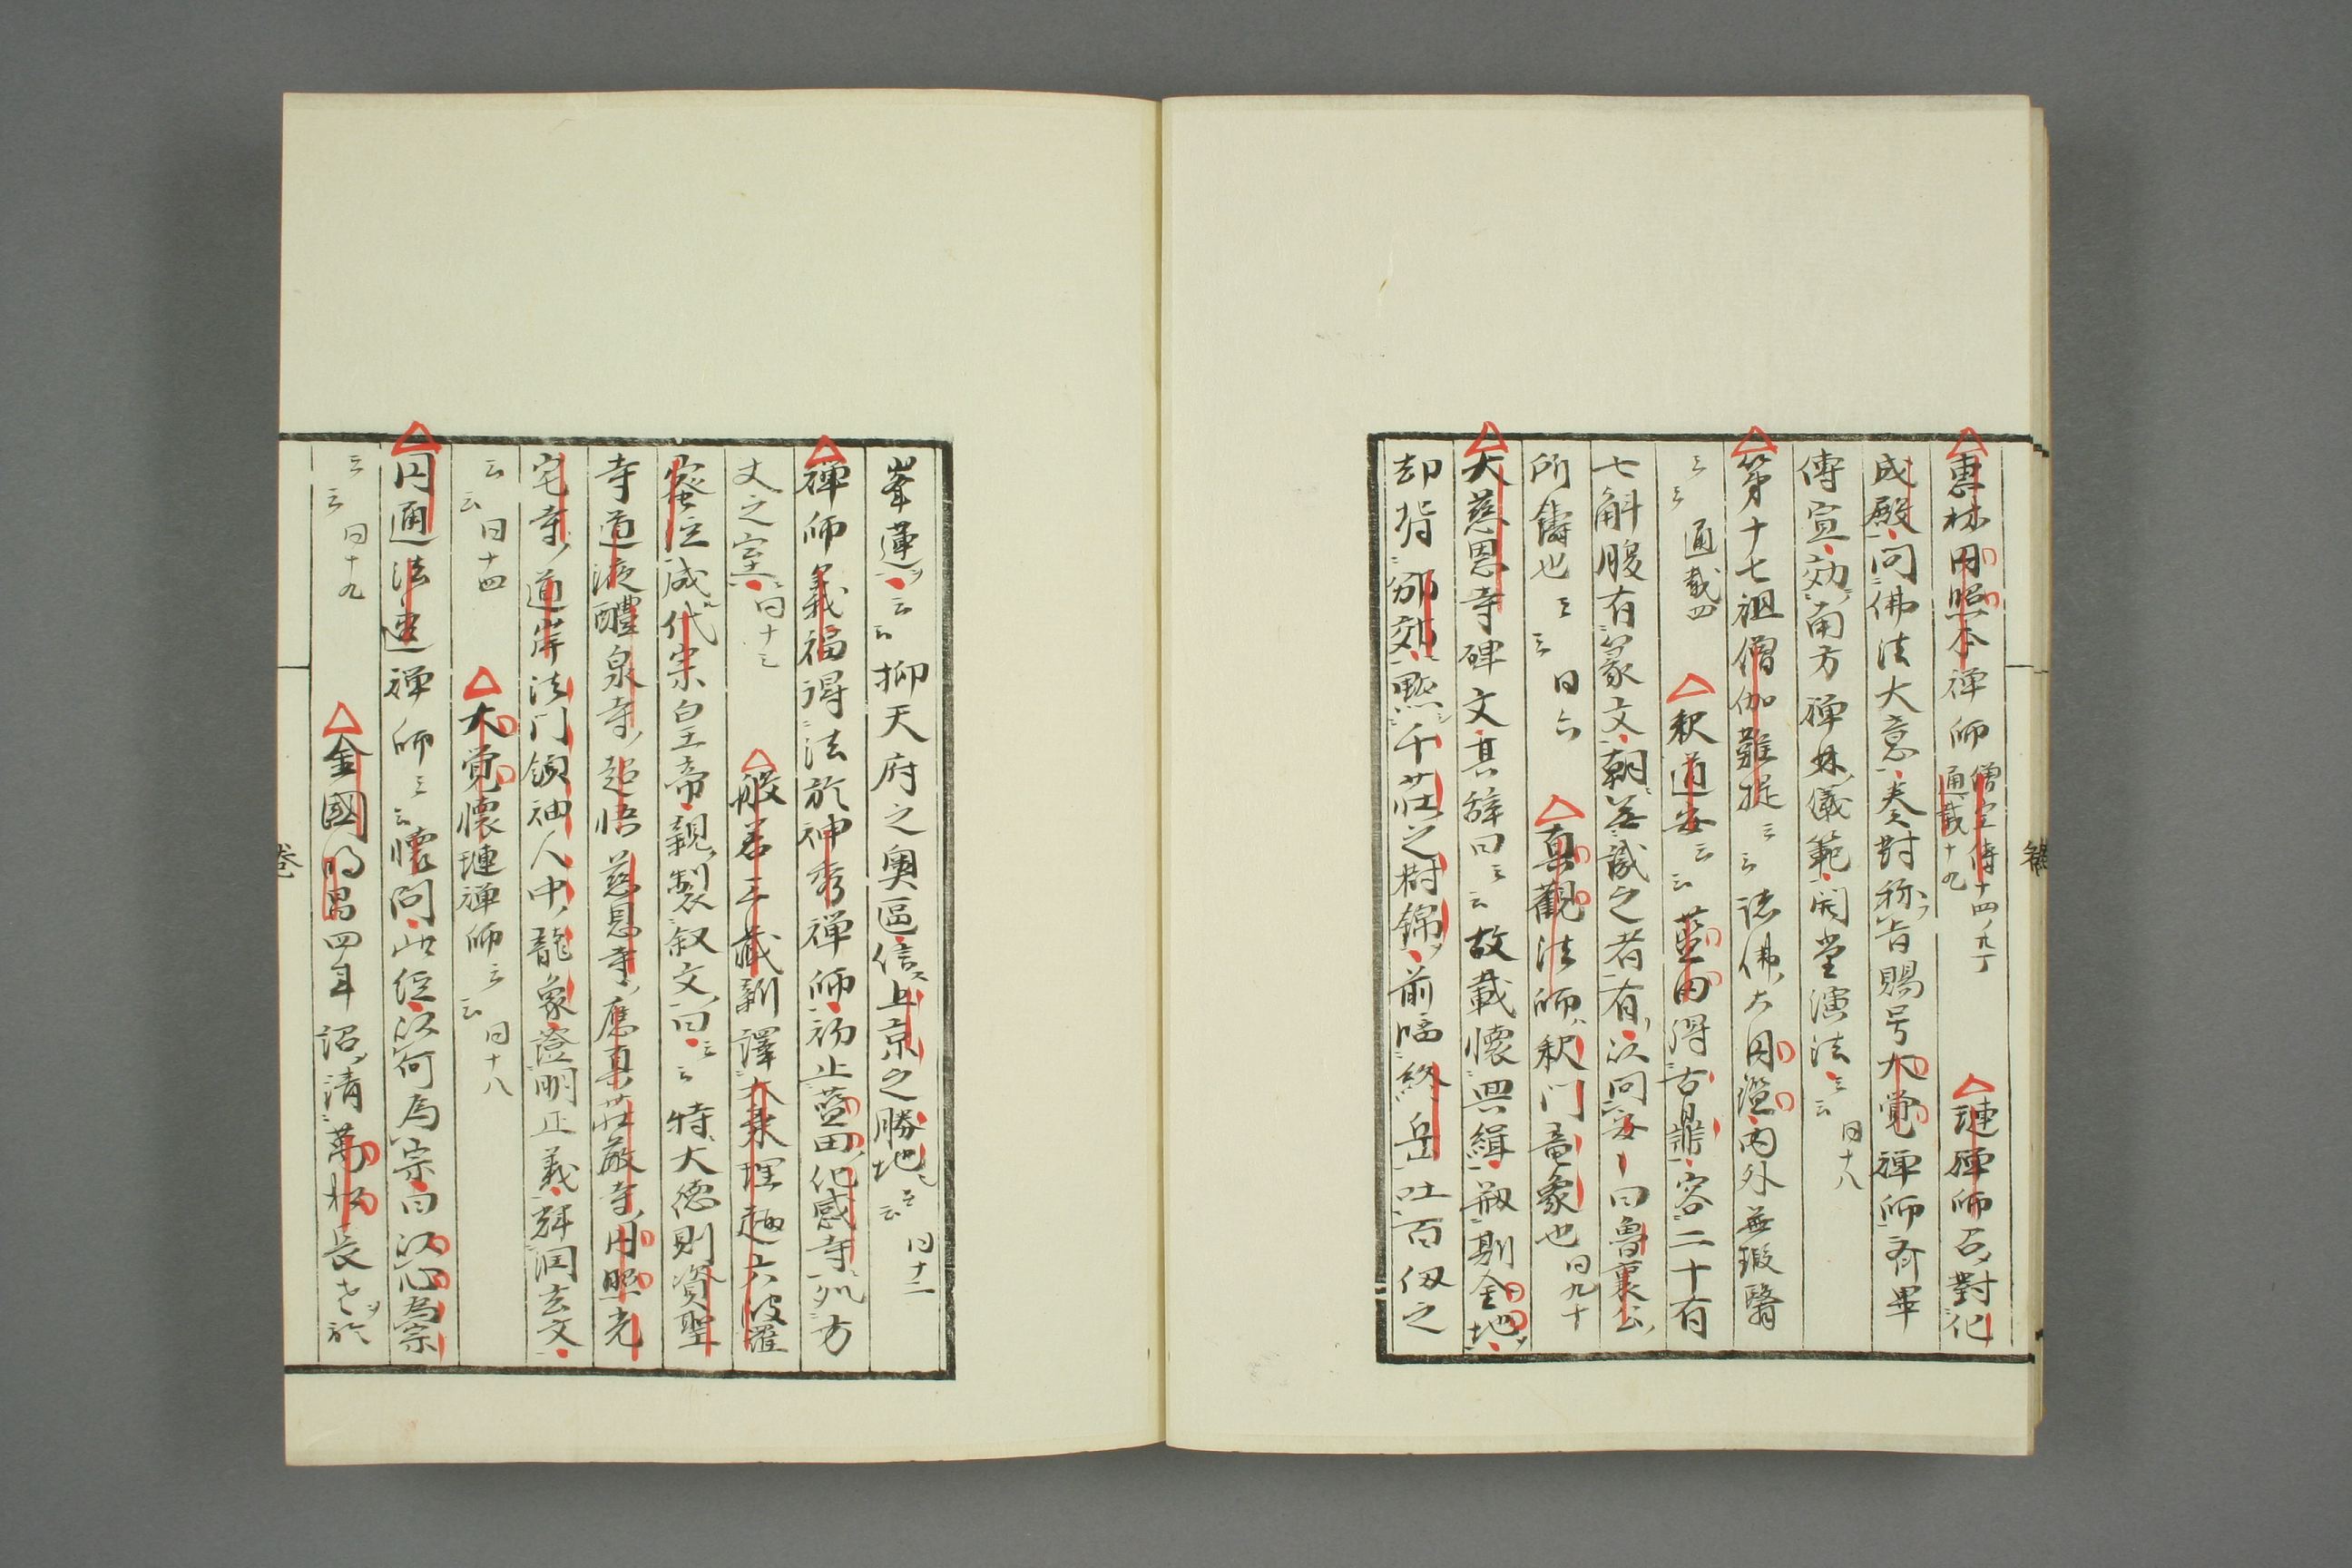 惠林円照本禅師 僧宝傳十四ノ九丁 通載十九 璉禅師召對化
成殿問佛法大意奏對称旨賜号大覚禅師斉畢
傳宣効南方禅林儀範開堂演法云云 同十八
第十七祖僧伽難提云云 諸佛大円鑑内外無瑕翳
云云 通載四 釈道安云云 藍田得古鼎容二十有
七斛腹有篆文朝無識之者有以問安〻曰魯襄公
所鑄也云云 同六 真觀法師釈门竜象也 同九十
大慈恩寺碑文其辞曰云云 故載懐興緝剏剃金地
却背邠郊點千莊之樹錦前臨終岳吐百仭之
峯蓮云云 抑天府之奥區信上京之勝地云云 同十二
禅師義福得法於神秀禅師初止藍田化感寺処方
丈之室 同十三 般若三藏新譯大乗理趣六波羅
蜜经成代宗皇帝親製叙文曰云云 特大德則資聖
寺道液醴泉寺超悟慈恩寺應真莊嚴寺円照光
宅寺道岸法门領袖人中龍象證明正義輝潤玄文
云云 同十四 大覚懐璉禅師云云 同十八
円通法速禅師云云 懐問此经以何為宗曰以心為宗
云云 同十九 金國明昌四年詔請萬松長老於